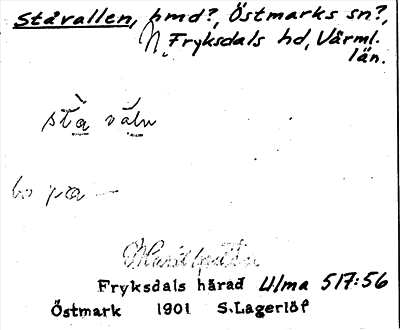 Ståvallen, hmd?, Östmarks sn?,
N. Fryksdals hd, Värml.
län.
stà vàln
bo på —
Fryksdals härad Ulma 517:56
Östmark 1901 S.Lagerlöf